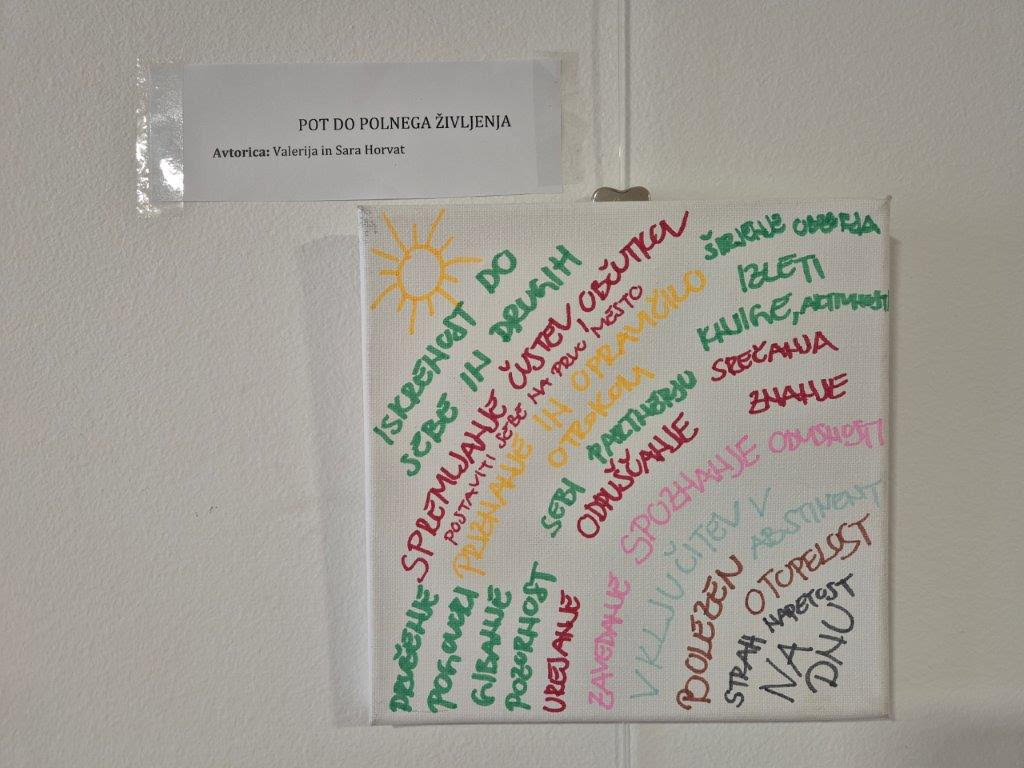 POT DO POLNEGA ŽIVLJENJA
Avtorica: Valerija in Sara Horvat
ISKRENOST DO
SEBE IN DRUGIH
SPREMLJANJE ČUSTEV, OBČUTKOV
POSTAVITI SEBE NA PRVO MESTO
PRIZNANJE IN OPRAVIČILO
OTROKOM
SEBI PARTNERJU
ODPUŠČANJE
ŠIRJENJE OBZORJA
IZLETI
KNJIGE, AKTIVNOSTI
SREČANJA
ZNANJE
DRUŽENJE
POGOVORI
GIBANJE
POZORNOST
UREJANJE
ZAVEDANJE SPOZNANJE ODVISNOSTI
VKLJUČITEV V
ABSTINENT
BOLEZEN OTOPELOST
STRAH NAPETOST
NA
DNU